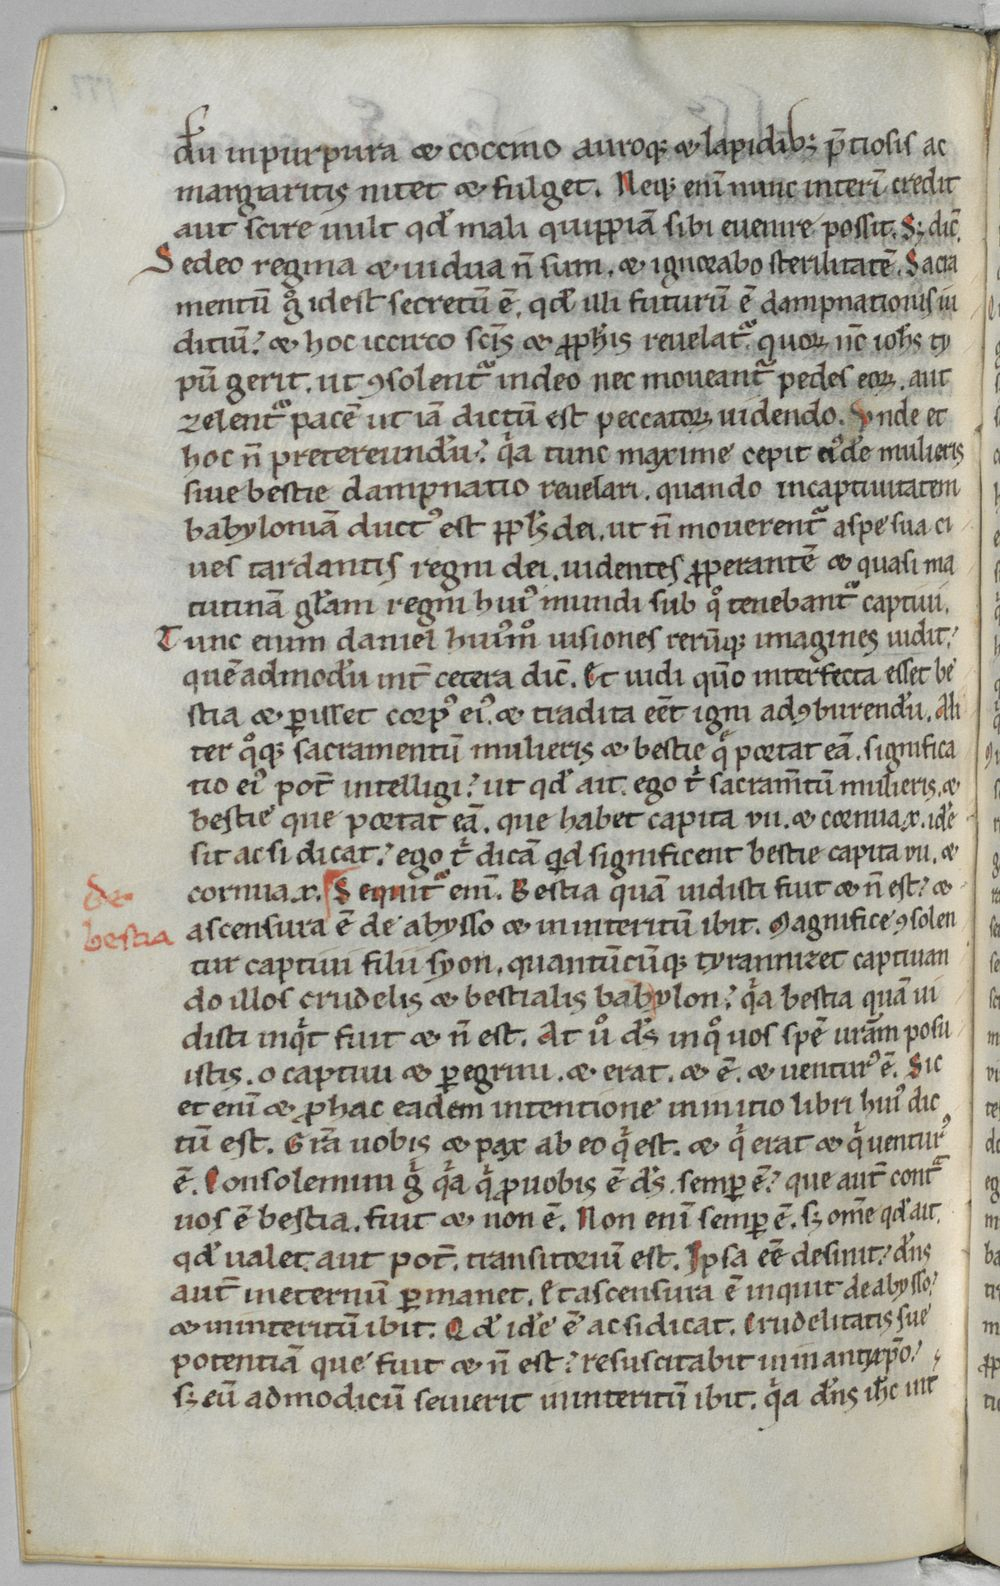 dũ in purpura & coccino auroq; & lapidib; p̄tiosis ac
margaritis nitet & fulget. Neq; eni᷃ nunc interi᷃ credit
aut scire uult qd̕ mali quippiā sibi euenire possit. Sꝫ dic̄.
Sedeo regina & uidua n̄ sum. & ignorabo sterilitatē. Sacra
mentū gͦ idest secretū ē. qd̕ illi futurū ē dampnationis iu
diciū? & hoc iccirco scīs & ꝓph̄is reuelatᷣ. quoꝝ nc̄ ioh̄s ty
pū gerit. ut ꝯsolentᷣ in deo nec moueantᷣ pedes eoꝝ. aut
zelentᷣ pacē ut iā dictū est peccatoꝝ uidendo. Unde et
hoc n̄ pretereundū? qͥa tunc maxime cepit ei᾽dē mulieris
siue bestie dampnatio reuelari. quando in captiuitatem
babyloniā duct᾽ est ppl̄s dei. ut n̄ mouerentᷣ a spe sua ci
ues tardantis regni dei. uidentes ꝓperantē & quasi ma
tutinā gl̄am regni hui᾽ mundi sub qͦ tenebantᷣ captiui.
Tunc enim daniel hui᾽mͦ uisiones rerūq; imagines uidit?
quēadmodū int̄ cetera dic̄. Et uidi qm̄o interfecta esset be
stia & ꝑisset corp᾽ ei᾽. & tradita eēt igni ad ꝯburendū. Ali
ter qͦq; sacramentū mulieris & bestie qͤ portat eā. significa
tio ei᾽ pot̄ intelligi? ut qd̕ ait. ego tͥ sacram̄tū mulieris. &
bestie que portat eā. que habet capita vii. & cornua.x. idē
sit ac si dicat? ego tͥ dicā quid significent bestie capita vii. &
cornua.x. Sequitᷣ eni᷃. Bestia quā uidisti fuit & n̄ est? &
de
bestia
ascensura ē de abysso & in interitū ibit. Magnifice ꝯsolen
tur captiui filii syon. quantūcūq; tyrannizet captiuan
do illos crudelis & bestialis babylon? qͥa bestia quā ui
disti inqͥt fuit & n̄ est. At uͦ d̄s in qͦ uos spē urām posu
istis. o captiui & ꝑegrini. & erat. & ē. & uentur᾽ ē. Sic
et eni᷃ & ꝓ hac eadem intentione in initio libri hui᾽ dic
tū est. Gr̄a uobis & pax ab eo qͥ est. & qͥ erat & qͥ uentur᾽
ē. Consolemini gͥ qͥa qͥ ꝓ uobis ē d̄s. semꝑ ē? que aut̄ contᷓ
uos ē bestia. fuit & non ē. Non eni᷃ semꝑ ē. sꝫ om̄e qd̕ ait.
qd̕ ualet aut pot̄. transitoriū est. Ipsa eē desinit? dn̄s
aut̄ in eternū ꝑmanet. Et ascensura ē inquit de abysso?
& in interitū ibit. Qd̕ idē ē ac si dicat. Crudelitatis sue
potentiā que fuit & n̄ est? resuscitabit in antyxp̄o?
sꝫ cū ad modicū seuierit in interitū ibit. qͥa dn̄s ih̄c int